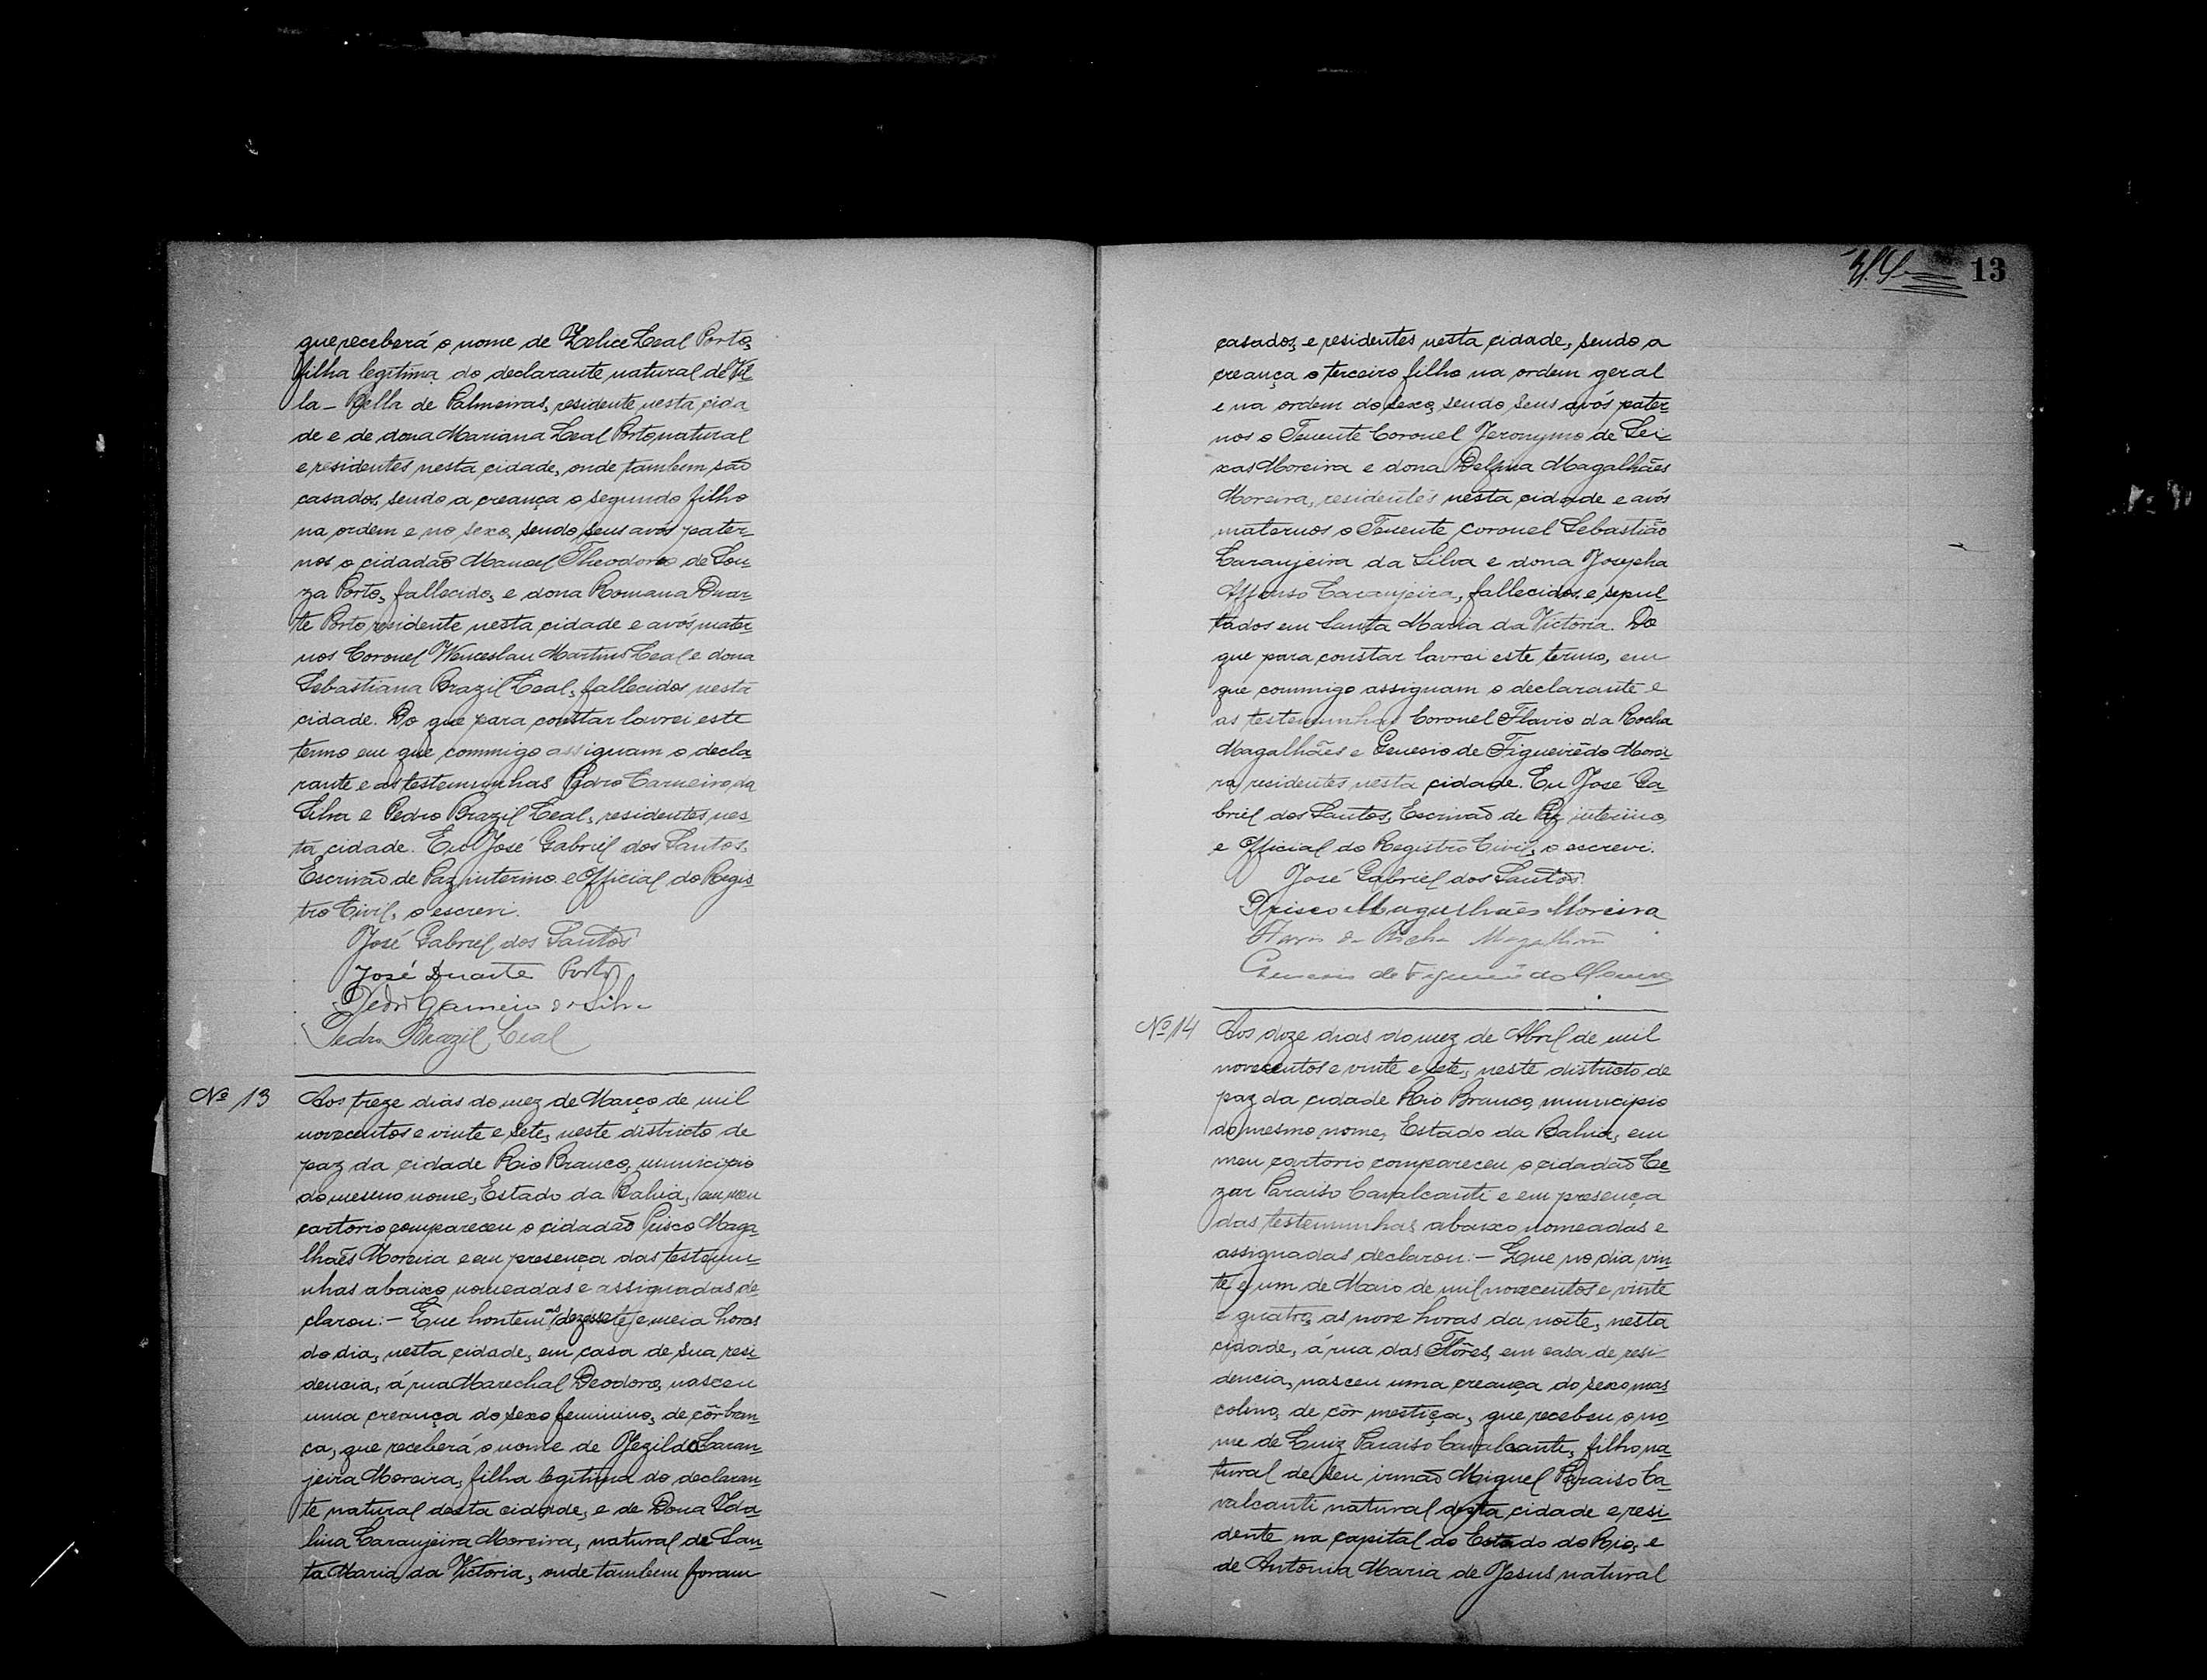 que receberá o nome de Zelice Leal Porto,
filha legitima do declarante natural de Vil
la-Bella de Palmeiras, residente nesta cida
de e de dona Mariana Leal Porto, natural
e residentes nesta cidade, onde tambem são
casados, sendo a creança o segundo filho
na ordem e no sexo, sendo seus avós pater-
nos o cidadão Manoel Theodoro de Sou-
za Porto, fallecido, e dona Romana Duar-
te Porto residente nesta cidade e avós mater-
nos Coronel Wenceslau Martins Leal e dona
Sebastiana Brazil Leal, fallecidos nesta
cidade. Do que para constar lavrei este
termo em que commigo assignam o decla-
rante e as testemunhas Pedro Carneiro da
Silva e Pedro Brazil Leal, residentes nes-
ta cidade. Eu José Gabriel dos Santos,
Escrivão de Paz interino e Official do Regis
tro Civil, o escrevi.
José Gabriel dos Santos
José Duarte Porto
Pedro Carneiro da Silva
Pedro Brazil Leal
Nº 13
Aos treze dias do mez de Março de mil
novecentos e vinte e sete, neste districto de
paz da cidade Rio Branco, municipio
do mesmo nome, Estado da Bahia, em meu
cartorio compareceu o cidadão Prisco Maga-
lhães Moreira e em presença das testemu-
nhas abaixo nomeadas e assignadas de-
clarou:- Que hontem, as dezessete e meia horas
do dia, nesta cidade, em casa de sua resi-
dencia, á rua Marechal Deodoro, nasceu
uma creança do sexo feminino, de côr bran-
ca, que receberá o nome de Jezilda Laran-
jeira Moreira, filha legitima do declaran-
te natural desta cidade, e de Dona Ida-
lina Laranjeira Moreira, natural de San-
ta Maria da Victoria, onde tambem foram
13
casados, e residentes nesta cidade, sendo a
creança o terceiro filho na ordem geral
e na ordem do sexo, sendo seus avós pater-
nos o Tenente Coronel Jeronymo de Sei-
xas Moreira e dona Delfina Magalhães
Moreira, residentes nesta cidade e avós
maternos o Tenente Coronel Sebastião
Laranjeira da Silva e dona Josepha
Affonso Laranjeira, fallecidos e sepul-
tados em Santa Maria da Victoria. Do
que para constar lavrei este termo, em
que commigo assignam o declarante e
as testemunhas Coronel Flavio da Rocha
Magalhães e Genesio de Figueirêdo Morei-
ra, residentes nesta cidade. Eu José Ga-
briel dos Santos, Escrivão de Paz interino,
e Official do Registro Civil, o escrevi.
José Gabriel dos Santos
Prisco Magalhães Moreira
Flavio da Rocha Magalhães
Genesio de Figueirêdo
Nº 14
Aos doze dias do mez de Abril de mil
novecentos e vinte e sete, neste districto de
paz da cidade Rio Branco, municipio
do mesmo nome, Estado da Bahia, em
meu cartorio compareceu o cidadão Ce-
zar Paraiso Cavalcanti e em presença
das testemunhas abaixo nomeadas e
assignadas declarou:- Que no dia vin
te e um de Maio de mil novecentos e vinte
e quatro, as nove horas da noite, nesta
cidade, á rua das Flôres, em casa de resi-
dencia, nasceu uma creança do sexo mas
colino, de côr mestiça, que recebeu o no-
me de Luiz Paraiso Cavalcante, filho na-
tural de seu irmão Miguel Paraiso Ca-
valcanti natural desta cidade e resi-
dente na capital do Estado do Rio, e
de Antonia Maria de Jesus natural